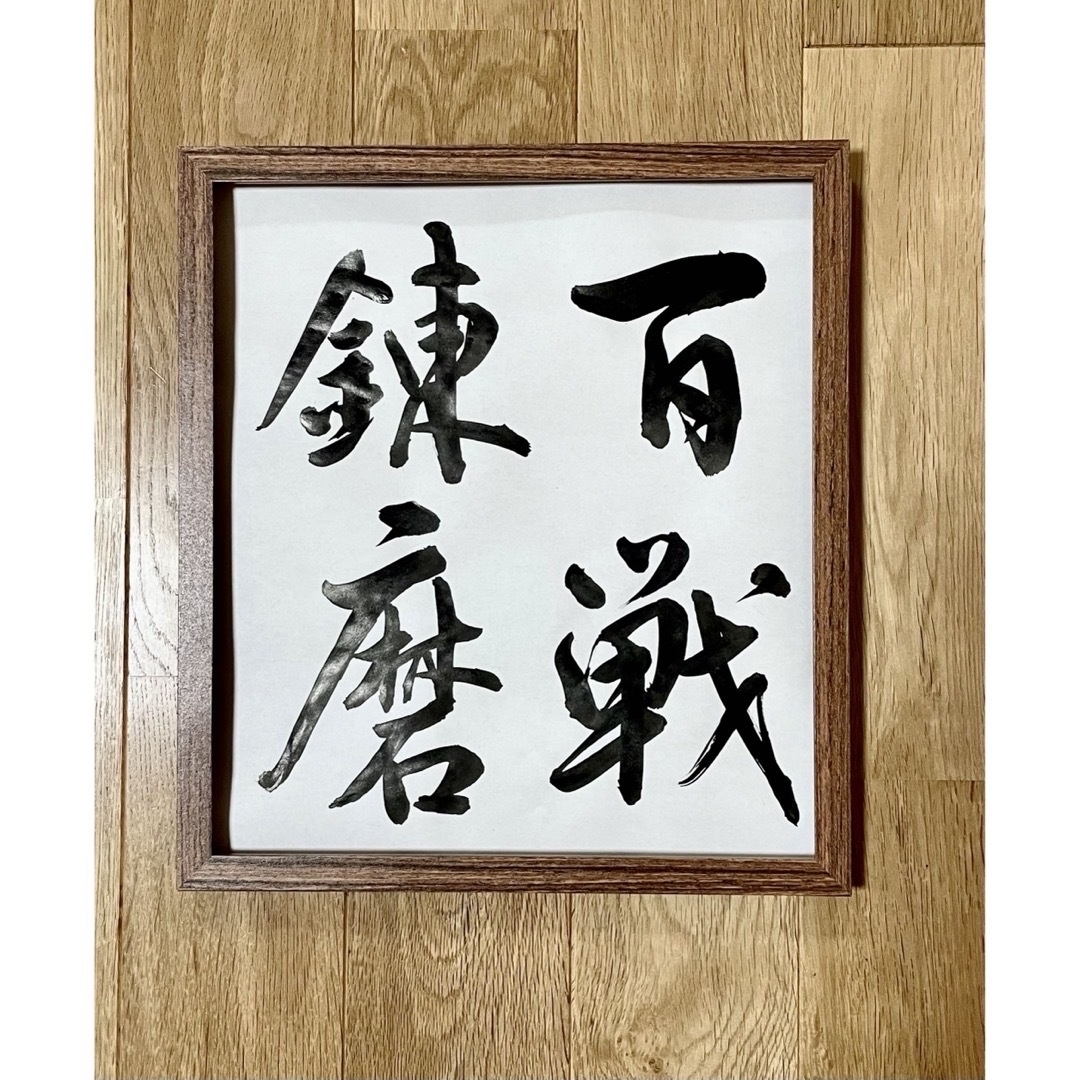 百戦
錬磨